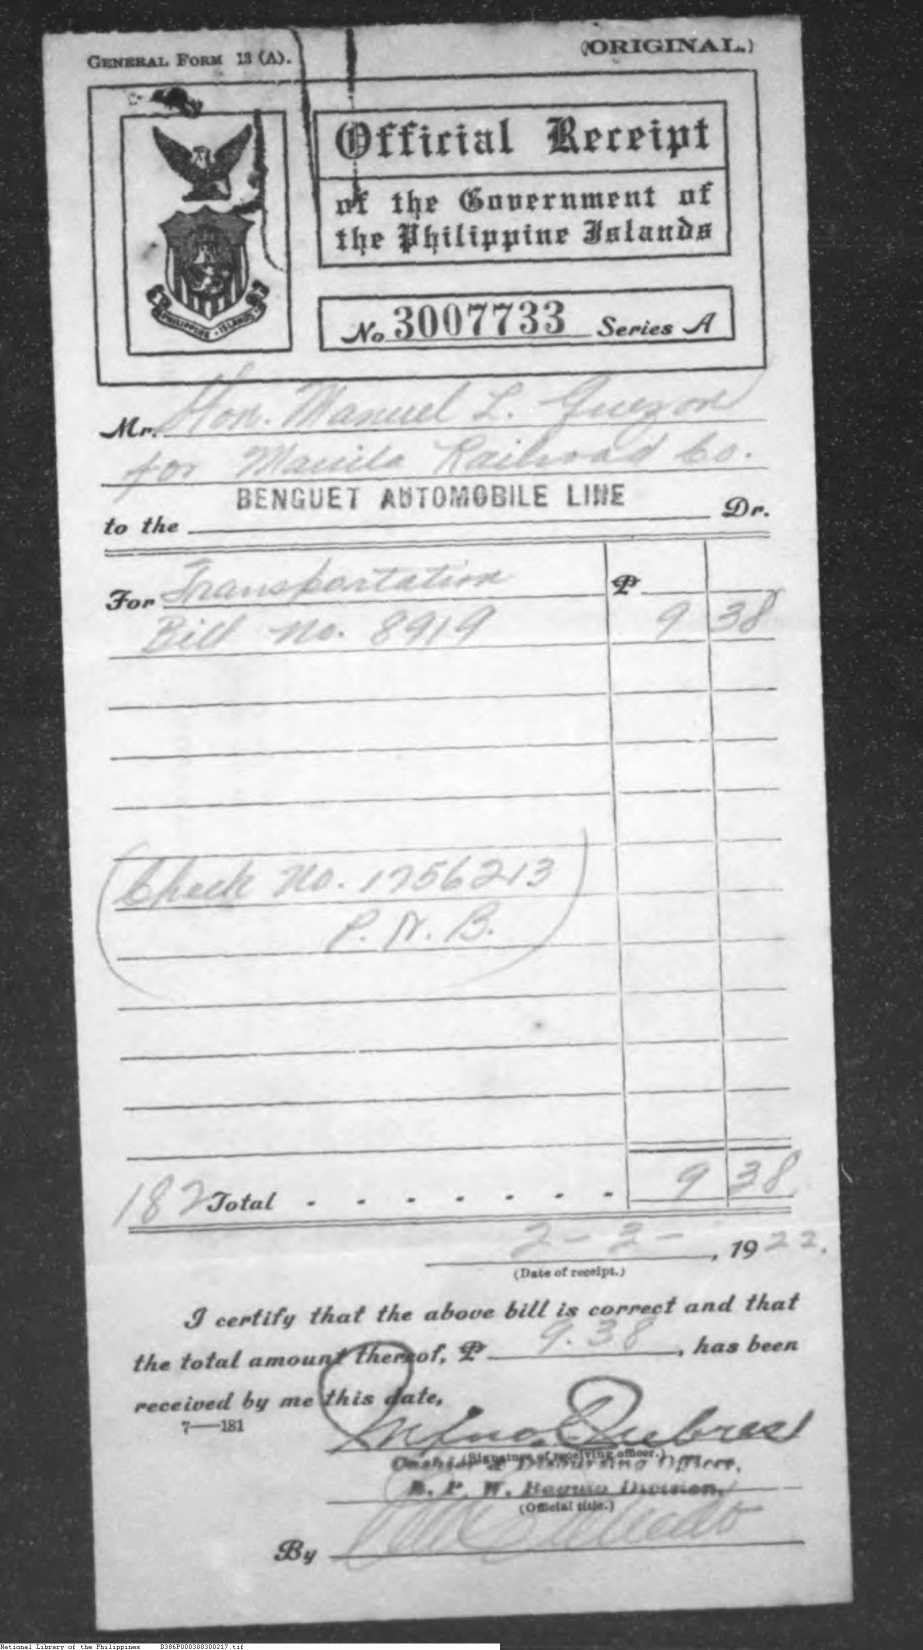 GENERAL FORM 13 (A).
(ORIGINAL.)
Official Receipt
of the Government of
the Philippine Islands
PHILIPPINE ISLANDS
No 3007733 Series A
Mr. Hon. Manuel L. Quezon
for Manila Railroad Co.
to the BENGUET AUTOMOBILE LINE Dr.
For Transportation ₱
Bill No. 8919 9 38
Check No. 1756213
P. N. B.
182 Total - - - - - - - 9 38
2-2-, 1922.
(Date of receipt.)
I certify that the above bill is correct and that
the total amount thereof, ₱ 9.38, has been
received by me this date.
7—181
(Signature of receiving officer.)
Cashier & Disbursing Officer,
B. P. W. Baguio Division,
(Official title.)
By
National Library of the Philippines B386P000300300217.tif